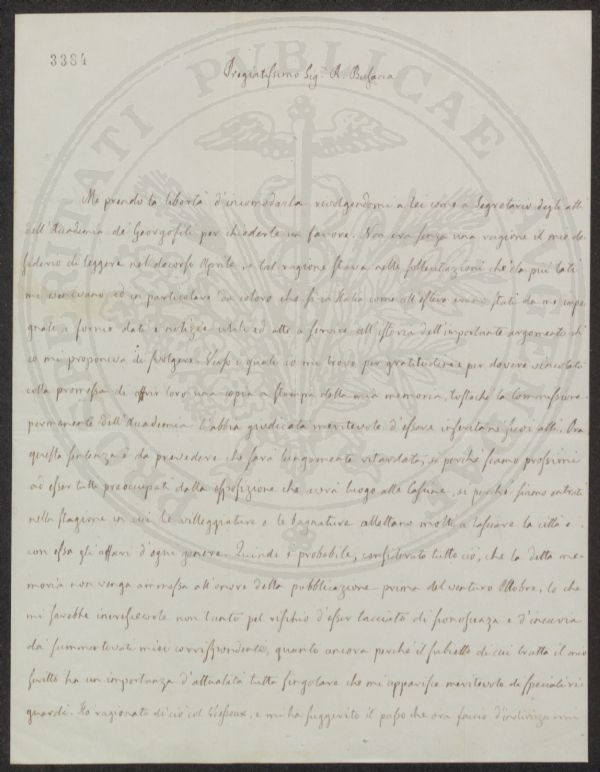 3384
Pregiatissimo Sig.r R. Busacca
Mi prendo la libertà d'incomodarla rivolgendomi a lei come a Segretario degli atti
dell'Accademia de' Georgofili per chiederle un favore. Non era senza una ragione il mio de-
siderio di leggere nel decorso Aprile, e tal ragione stava nelle sollecitazioni che da più lati
mi venivano ed in particolare da coloro che sì in Italia come all'estero erano stati da me impe-
gnati a fornir dati e notizie utili ed atte a servire all'istoria dell'importante argomento ch'
io mi proponeva di svolgere. Verso i quali io mi trovo per gratitudine e per dovere vincolato
colla promessa di offrir loro una copia a stampa della mia memoria, tostochè la Commissione
permanente dell'Accademia l'abbia giudicata meritevole d'essere inserita ne' suoi atti. Ora
questa sentenza è da prevedere che sarà lungamente ritardata, sì perchè siamo prossimi
ad esser tutti preoccupati dalla esposizione che avrà luogo alle Cascine, sì perchè siamo entrati
nella stagione in cui le villeggiature e le bagnature allettano molti a lasciare la città e
con essa gli affari d'ogni genere. Quindi è probabile, considerato tutto ciò, che la detta me-
moria non venga ammessa all'onore della pubblicazione prima del venturo Ottobre, lo che
mi sarebbe increscevole non tanto pel rischio d'esser tacciato di sconoscenza e d'incuria
da' summentovati miei corrispondenti, quanto ancora perchè il subietto di cui tratta il mio
scritto ha un'importanza d'attualità tutta singolare che mi apparisce meritevole di speciali ri-
guardi. Ho ragionato di ciò col Vieusseux, e mi ha suggerito il passo che ora faccio d'indirizzarmi
PROSPERITATI PUBLICAE AUGENDAE